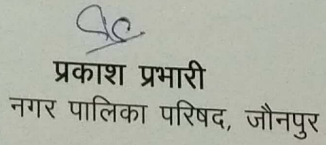 प्रकाश प्रभारी
नगर पालिका परिषद, जौनपुर